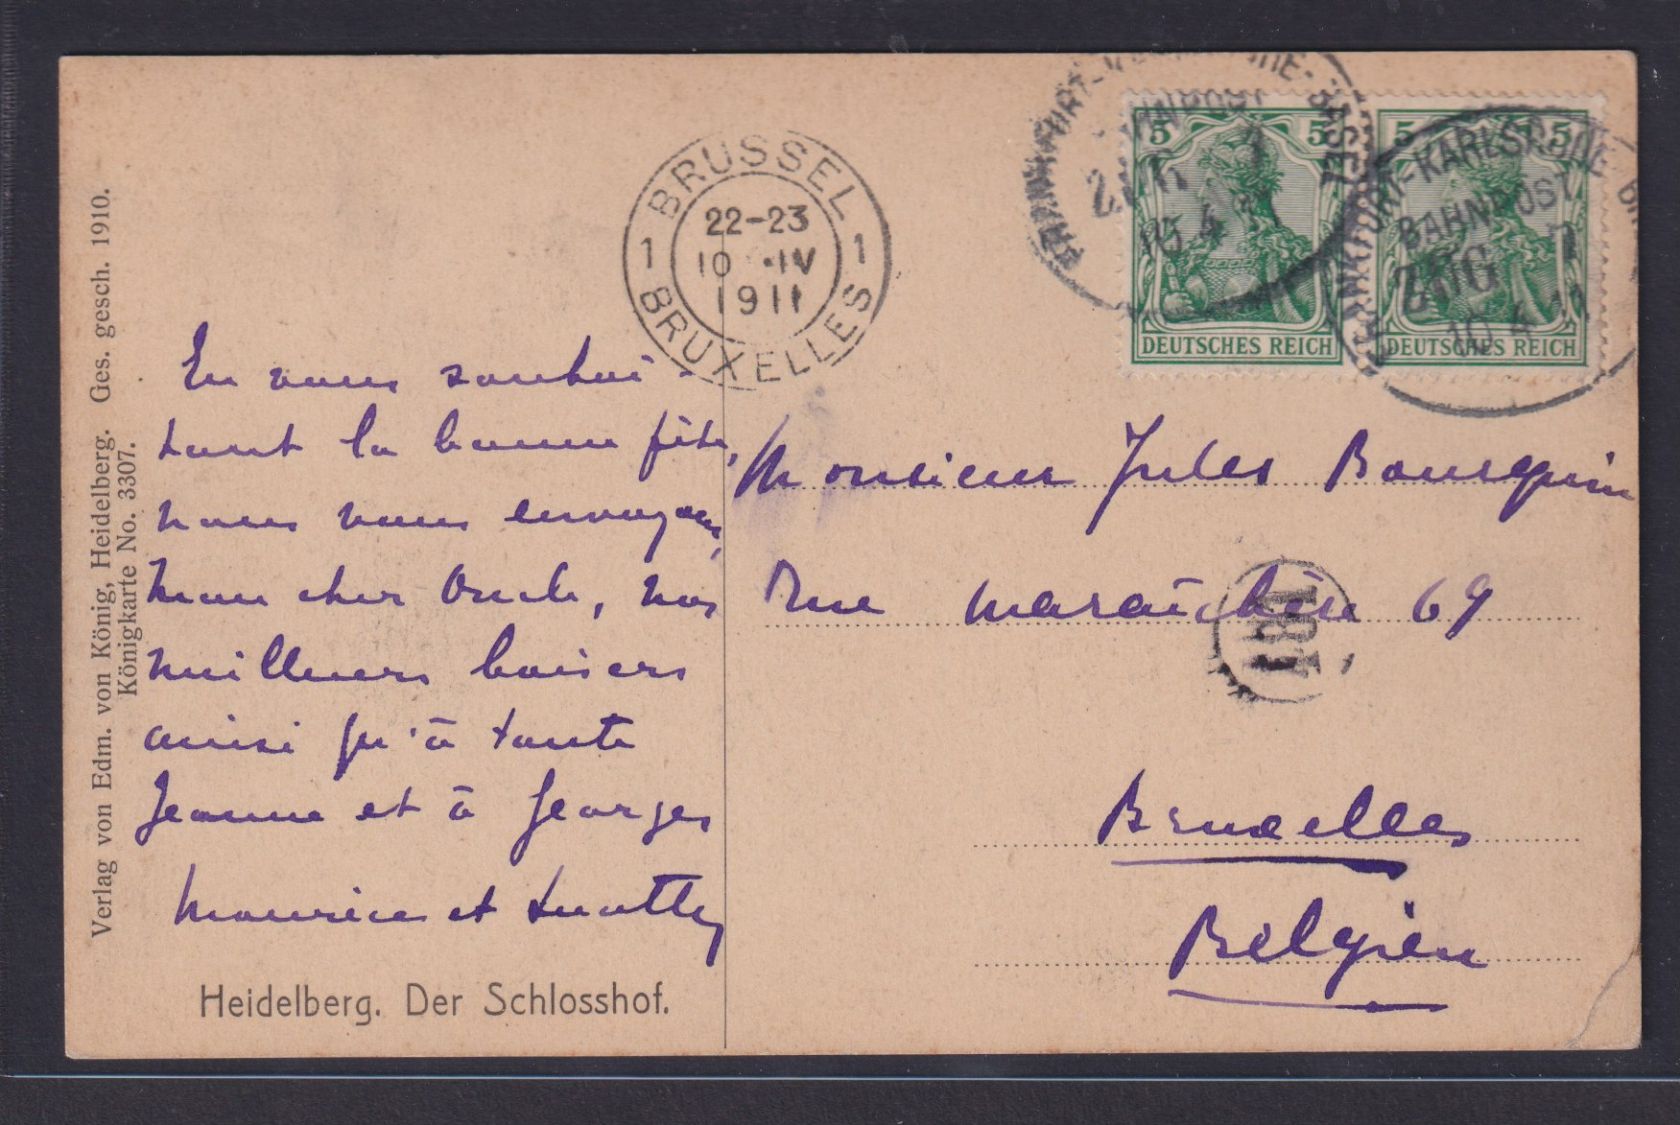 Verlag von Edm. von König, Heidelberg. Ges. gesch. 1910.
Königkarte No. 3307.
BRUSSEL
22-23
1 10 IV 1
1911
BRUXELLES
FRANKFURT- BASEL
BAHNPOST
10.4
FRANKFURT-KARLSRUHE-
BAHNPOST
ZUG 7
10 4 11
5 5
DEUTSCHES REICH
5 5
DEUTSCHES REICH
En vous souhai-
tant la bonne fête,
nous vous envoyons,
mon cher Oncle, nos
meilleurs baisers
ainsi qu'à tante
Jeanne et à Georges
Maurice et
Monsieur Jules Bourquin
Rue maraîchère 69
Bruxelles
Belgien
Heidelberg. Der Schlosshof.